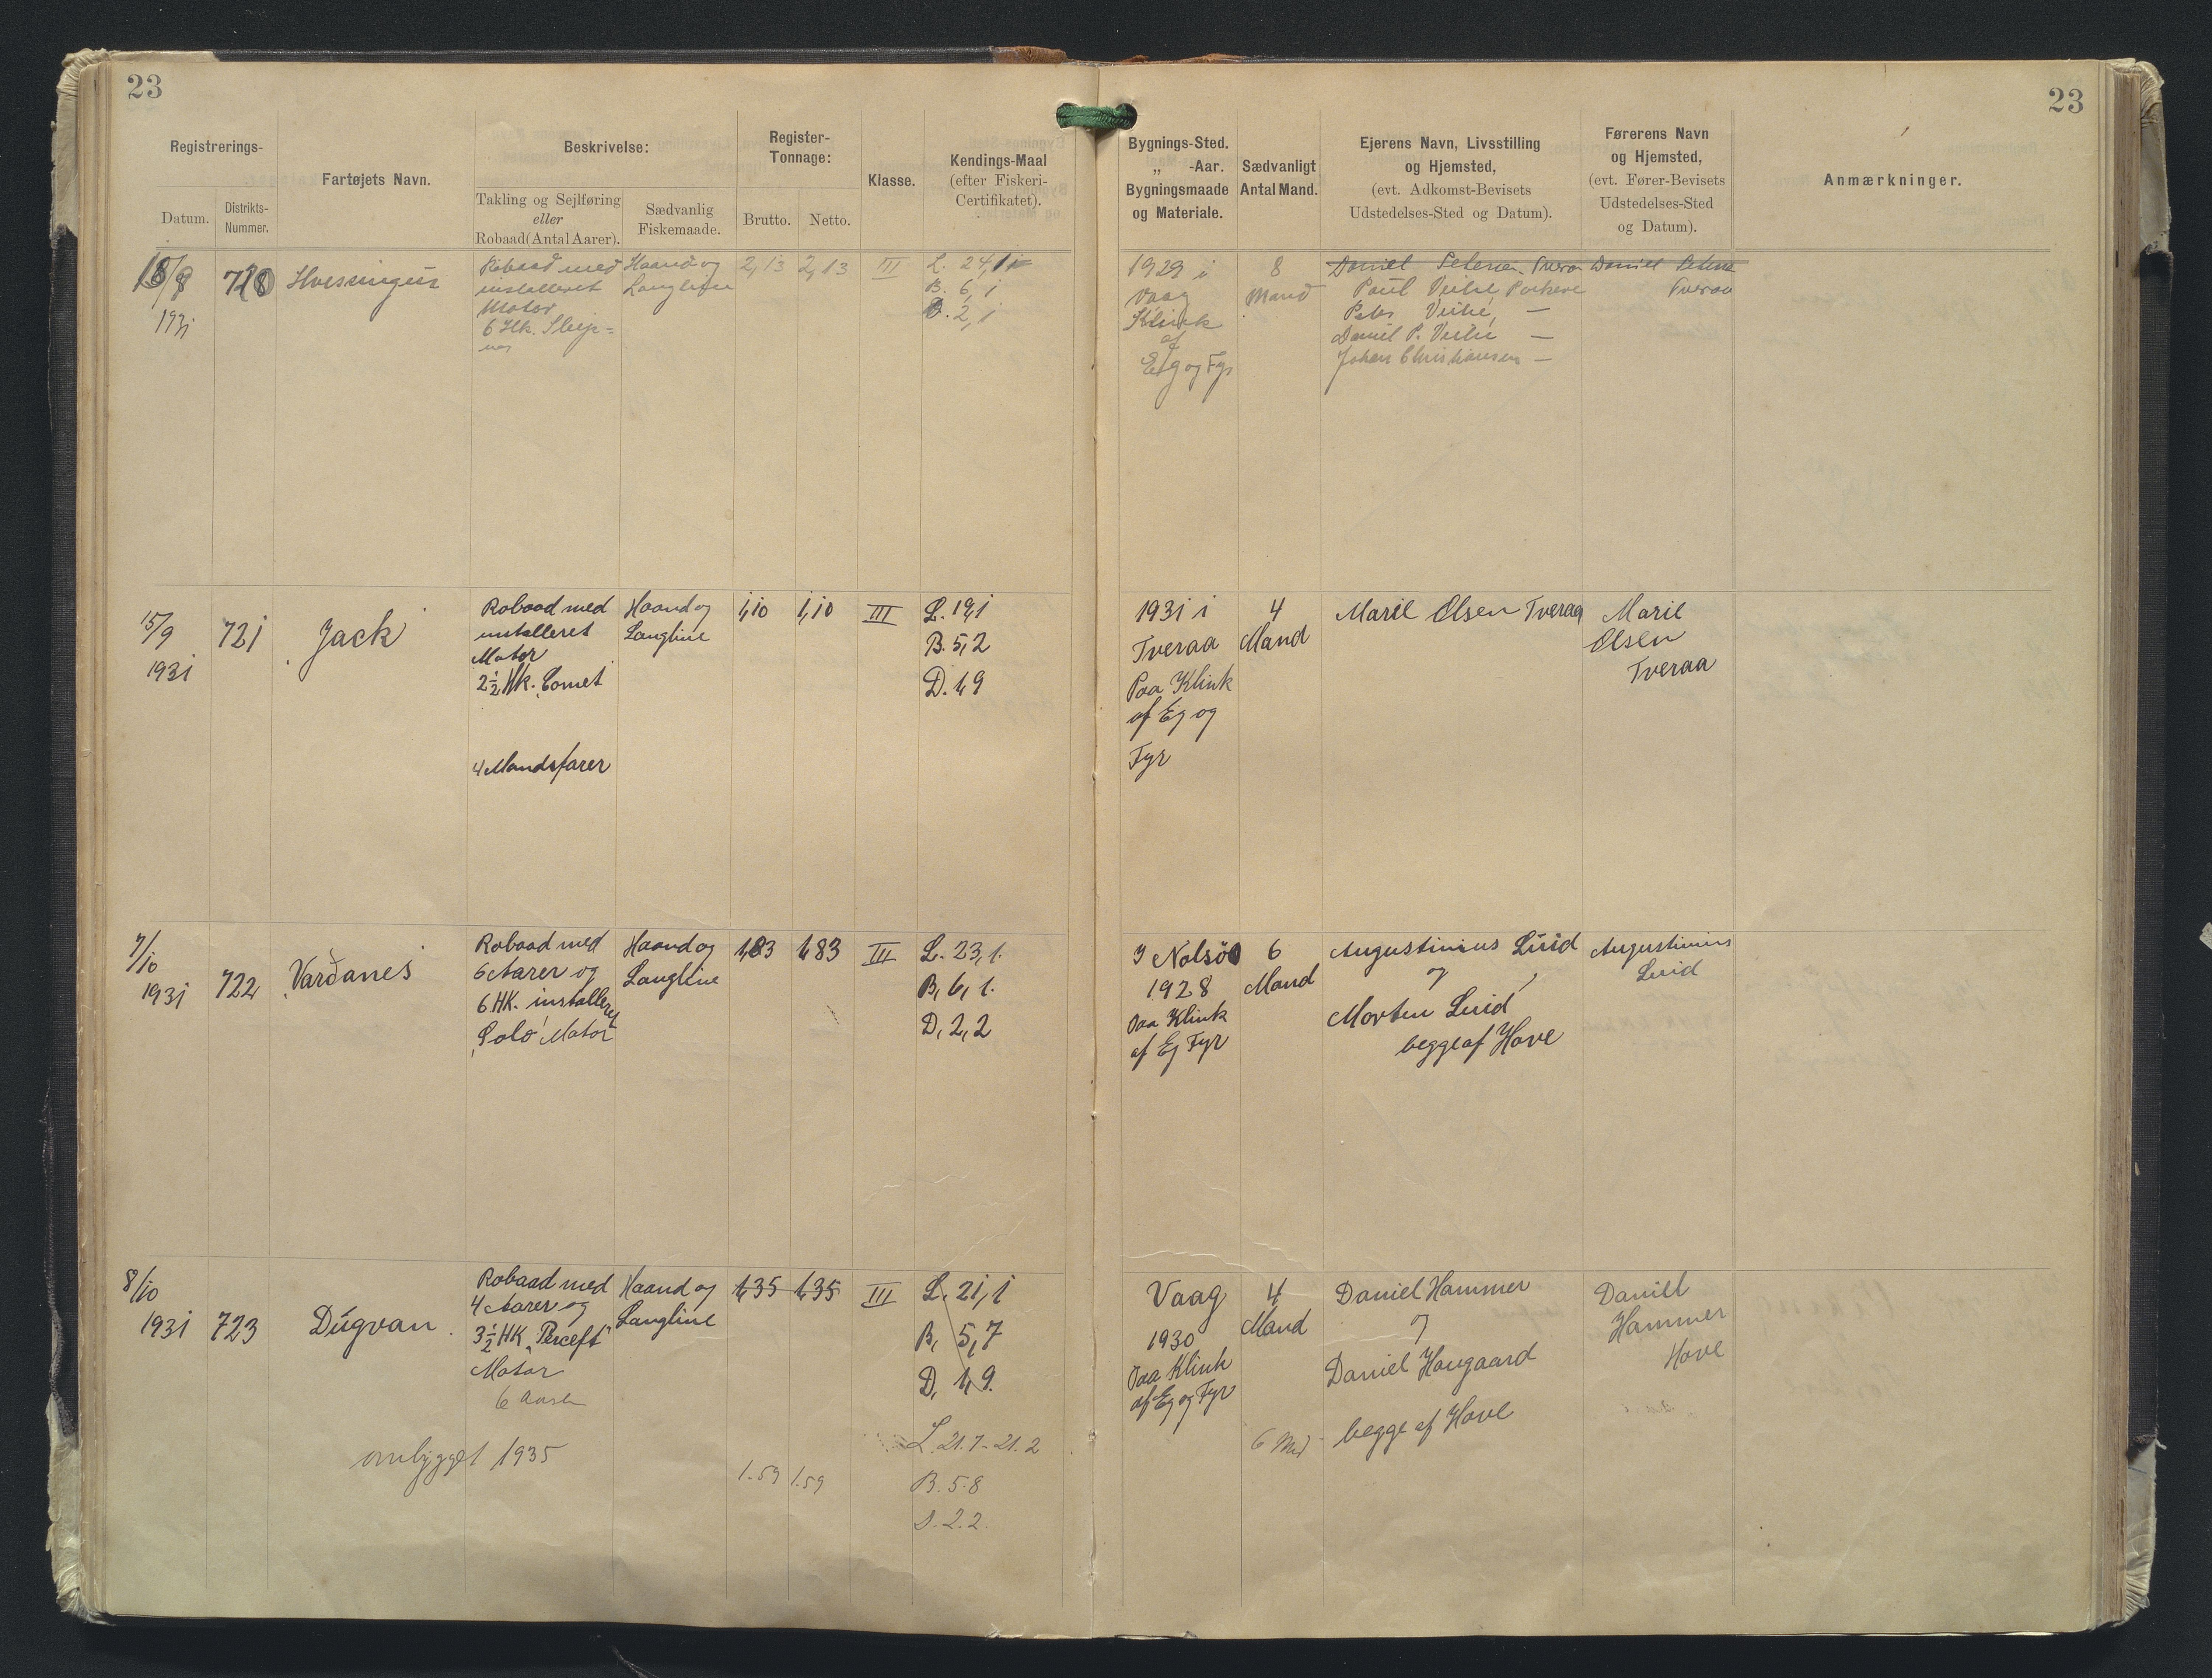 23
23
Registrerings-
Datum.
Distrikts-
Nummer.
Fartøjets Navn.
Beskrivelse:
Takling og Sejlføring
eller
Robaad (Antal Aarer).
Sædvanlig
Fiskemaade.
Register-
Tonnage:
Brutto.
Netto.
Klasse.
Kendings-Maal
(efter Fiskeri-
Certifikatet).
Bygnings-Sted.
„ -Aar.
Bygningsmaade
og Materiale.
Sædvanligt
Antal Mand.
Ejerens Navn, Livsstilling
og Hjemsted,
(evt. Adkomst-Bevisets
Udstedelses-Sted og Datum).
Førerens Navn
og Hjemsted,
(evt. Fører-Bevisets
Udstedelses-Sted
og Datum).
Anmærkninger.
1931
720
Robaad med
installeret
Motor
6 Hk. Sleip=
ner
Haand og
Langline
2,13
2,13
III
L. 24,1
B. 6,1
D. 2,1
1929 i
Vaag
Klink
af
Eg og Fyr
8
Mand
Daniel Petersen. Tveraa
Poul
Peter
Daniel P.
Johan Christiansen —
Daniel Peters
Tveraa
15/9
1931
721
Jack
Robaad med
installeret
Motor
2½ Hk. Comet
4 Mandsfarer
Haand og
Langline
1,10
1,10
III
L. 19,1
B. 5,2
D. 1,9
1931 i
Tveraa
Paa Klink
af Eg og
Fyr
4
Mand
Olsen Tveraa
Olsen
Tveraa
7/10
1931
722
Varðanes
Robaad med
6 Aarer og
6 HK. installeret
Solo Motor
Haand og
Langline
1,83
1,83
III
L. 23,1.
B, 6,1.
D, 2,2
I Nolsø
1928
Paa Klink
af Eg Fyr
6
Mand
Augustinius Luid
og
Morten Luid
begge af Hove
Augustinius
Luid
8/10
1931
723
Dúgvan
Robaad med
4 Aarer og
3½ HK
Motor
6 Aarer
ombygget 1935
Haand og
Langline
1,35
1,35
1.59
1.59
III
L. 21,1
B, 5,7
D, 1,9.
L. 21.7-21.2
B. 5.8
D. 2.2.
Vaag
1930
Paa Klink
af Eg og Fyr
4
Mand
6 Md
Daniel Hammer
og
Daniel Haugaard
begge af Hove
Daniel
Hammer
Hove